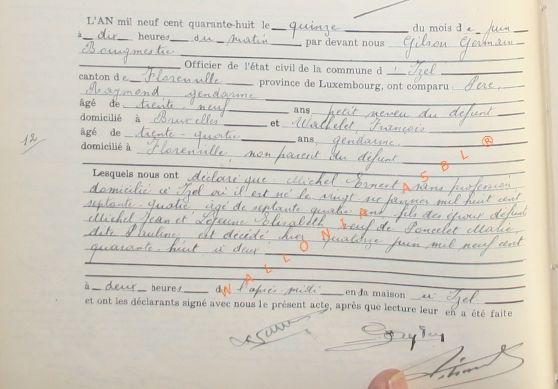 L'AN mil neuf cent quarante-huit le quinze du mois de juin
à dix heures du matin par devant nous Gilson Germain
Bourgmestre
Officier de l'état civil de la commune d'Izel
canton de Florenville province de Luxembourg, ont comparu Père,
Raymond gendarme
âgé de trente-neuf ans petit neveu du défunt
domicilié à Bruxelles et Wathelet, François
âgé de trente-quatre ans, gendarme
domicilié à Florenville, non parent du défunt
12
Lesquels nous ont déclaré que Michel Ernest sans profession
domicilié à Izel où il est né le vingt janvier mil huit cent
septante-quatre âgé de septante quatre ans, fils des époux défunt
Michel Jean et Lejeune Elisabeth, veuf de Poncelet Marie,
Pauline, est décédé hier quatorze juin mil neuf cent
quarante-huit à deux
à deux heures d l'après-midi en da maison à Izel
et ont les déclarants signé avec nous le présent acte, après que lecture leur en a été faite
WALLONIA ASBL ®